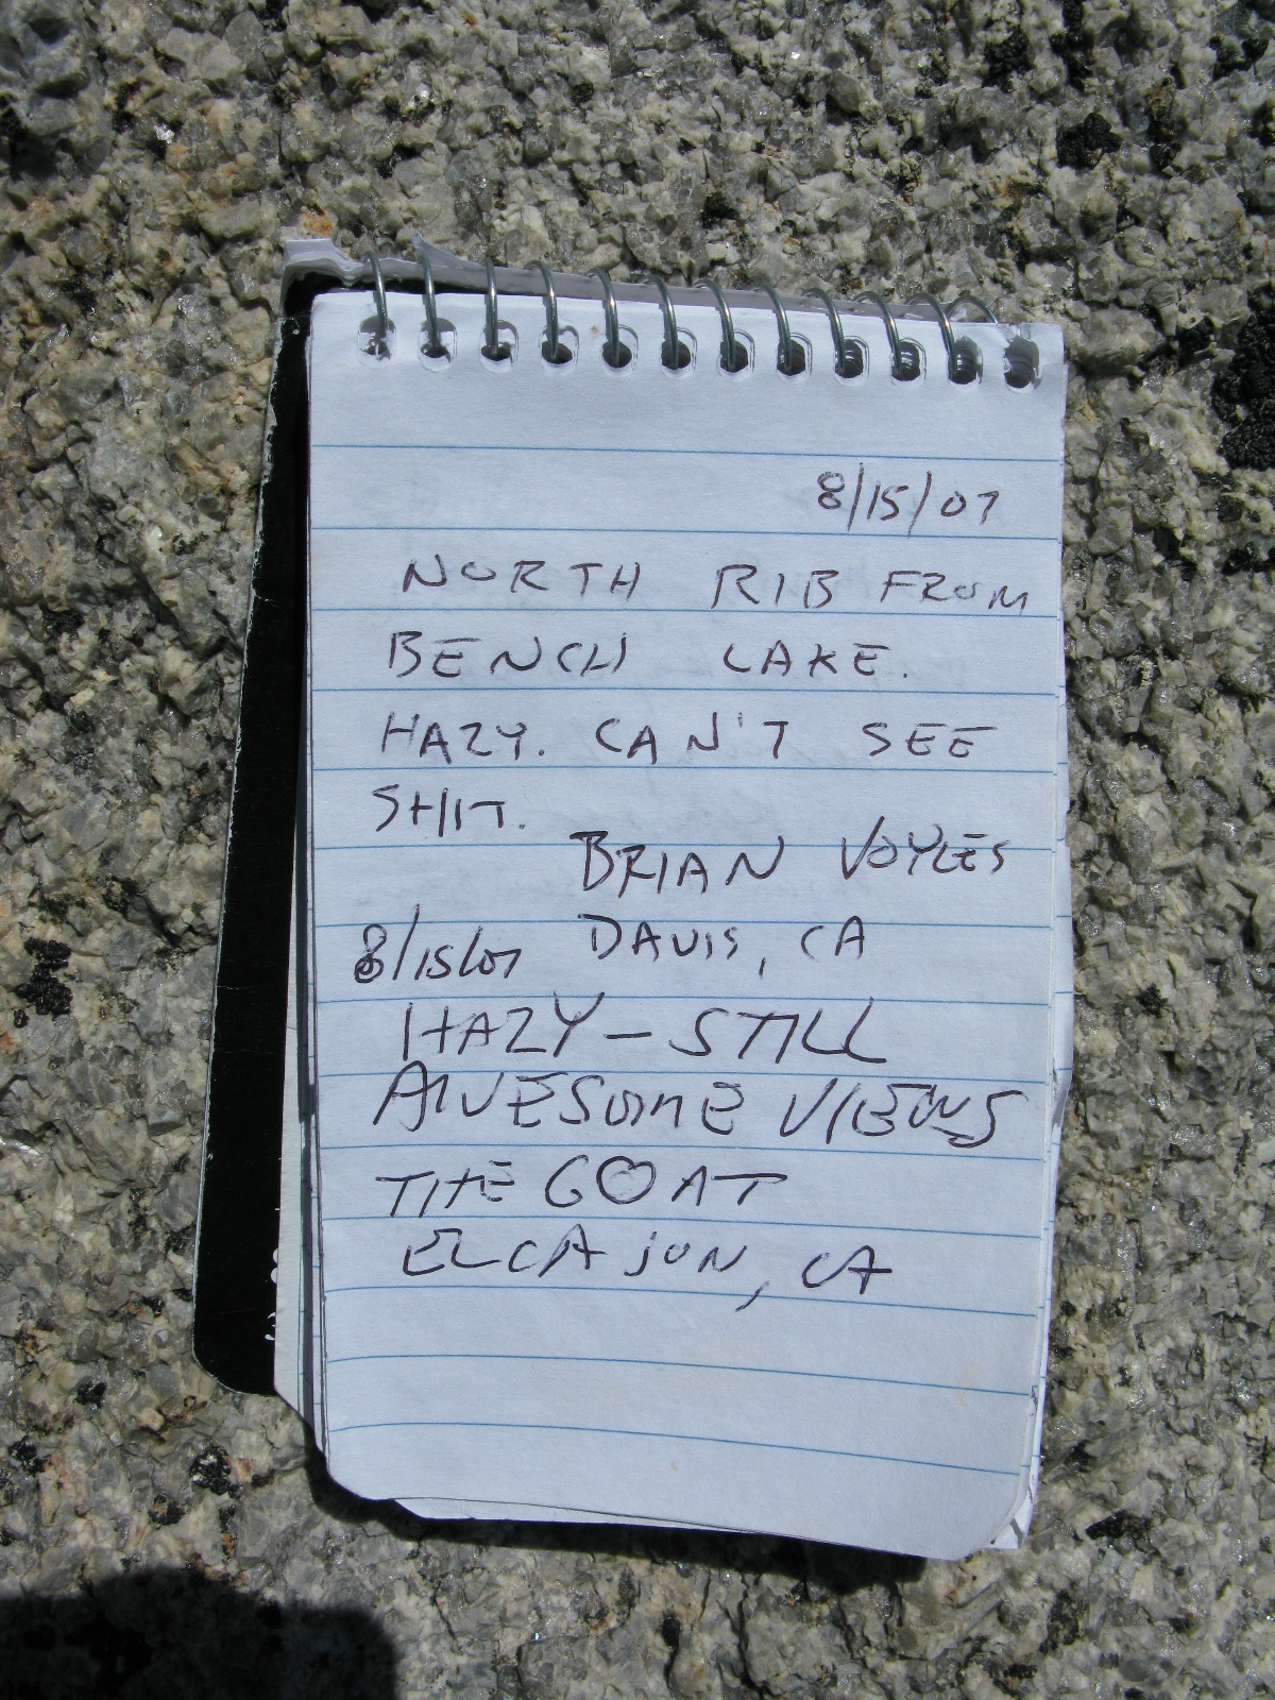 8/15/07
NORTH RIB FROM
BENCH LAKE.
HAZY. CAN'T SEE
SHIT.
BRIAN VOYLES
DAVIS, CA
8/15/07
HAZY – STILL
AWESOME VIEWS
THE GOAT
EL CAJON, CA